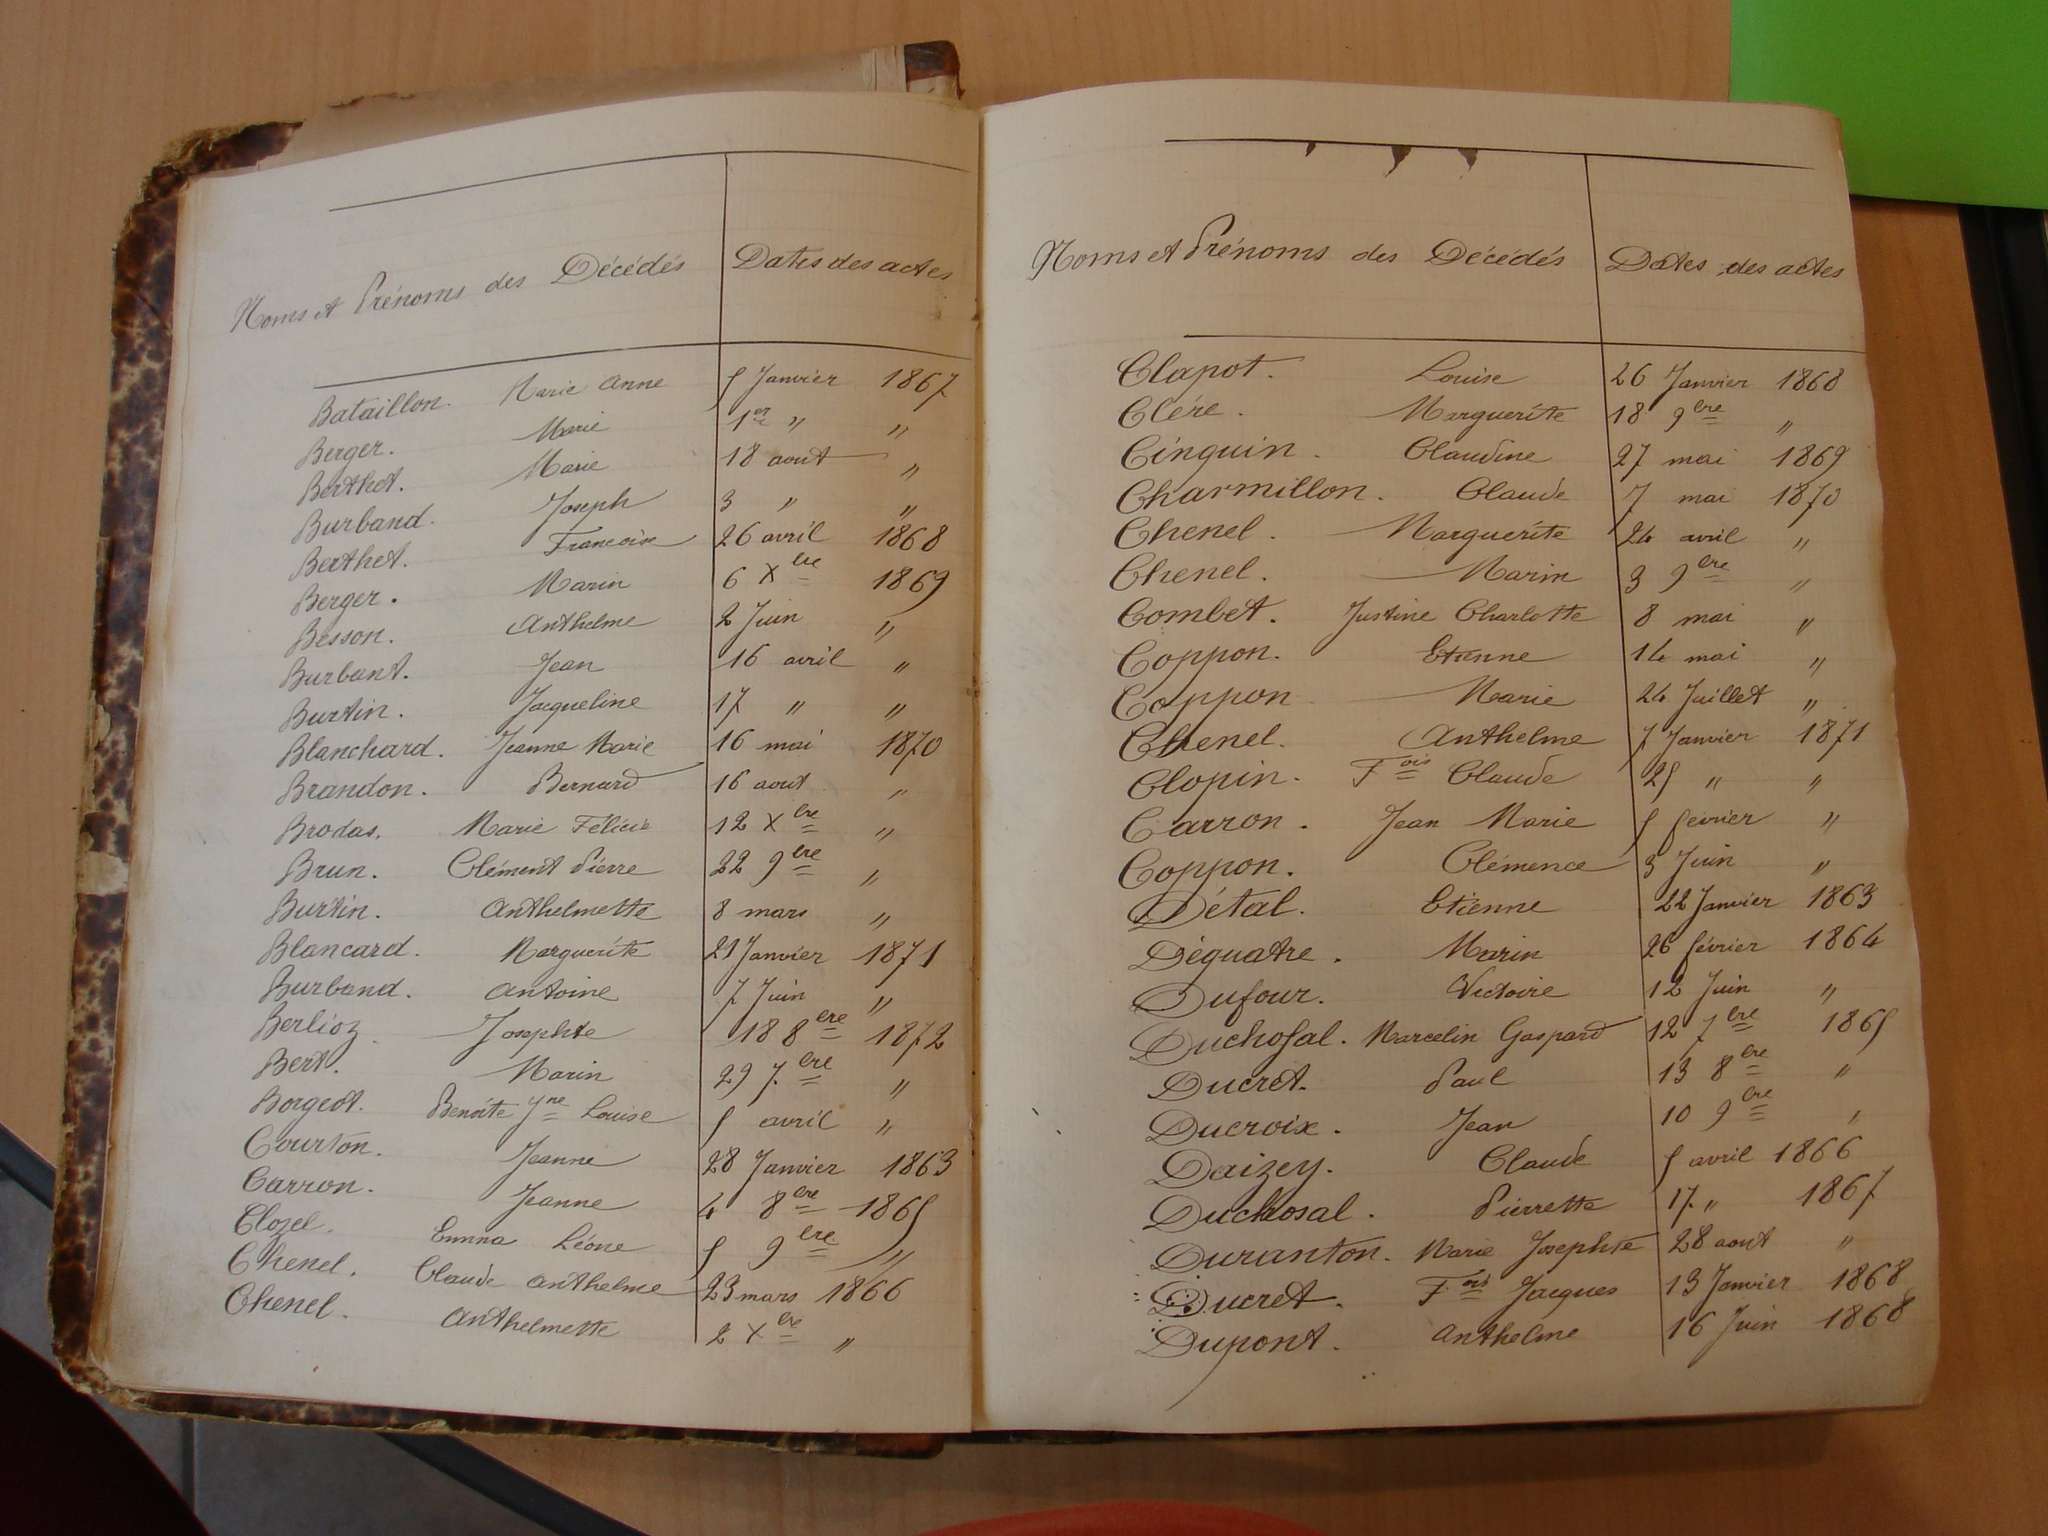 Noms et Prénoms des Décédés Dates des actes
Bataillon. Marie Anne 5 Janvier 1867
Berger. Marie 1er " "
Berthet. Marie 18 aout "
Burband. Joseph 3 " "
Berthet. Francoise 26 avril 1868
Berger. Marin 6 Xbre 1869
Besson. Anthelme 2 Juin "
Burbant. Jean 16 avril "
Burtin. Jacqueline 17 " "
Blanchard. Jeanne Marie 16 mai 1870
Brandon. Bernard 16 aout "
Brodas. Marie Félicie 12 Xbre "
Brun. Clément Pierre 22 9bre "
Burtin. Anthelmette 8 mars "
Blancard. Marguerite 21 Janvier 1871
Burband. Antoine 7 Juin "
Berlioz Josephte 18 8bre 1872
Bert. Marin 29 7bre "
Borgeot. Benoîte Jne Louise 5 avril "
Courton. Jeanne 28 Janvier 1863
Carron. Jeanne 4 8bre 1865
Clozel. Emma Léone 5 9bre "
Chenel. Claude Anthelme 23 mars 1866
Chenel. Anthelmette 2 Xbre "
Noms et Prénoms des Décédés Dates des actes
Clapot. Louise 26 Janvier 1868
Clére. Marguerite 18 9bre "
Cinguin. Claudine 27 mai 1869
Charmillon. Claude 7 mai 1870
Chenel. Marguerite 24 avril "
Chenel. Marin 3 9bre "
Combet. Justine Charlotte 8 mai "
Coppon. Etienne 14 mai "
Coppon Marie 24 Juillet "
Chenel. Anthelme 7 Janvier 1871
Clopin. Fois Claude 25 " "
Carron. Jean Marie 5 fevrier "
Coppon. Clémence 3 Juin "
Détal. Etienne 22 Janvier 1863
Déquatre. Marin 26 février 1864
Dufour. Victoire 12 Juin "
Duchosal. Marcelin Gaspard 12 7bre 1865
Ducret. Paul 13 8bre "
Ducroix. Jean 10 9bre "
Daizey. Claude 5 avril 1866
Duchosal. Pierrette 17. " 1867
Duranton. Marie Josephte 28 aout "
Ducret. Fois Jacques 13 Janvier 1868
Dupont. Anthelme 16 Juin 1868